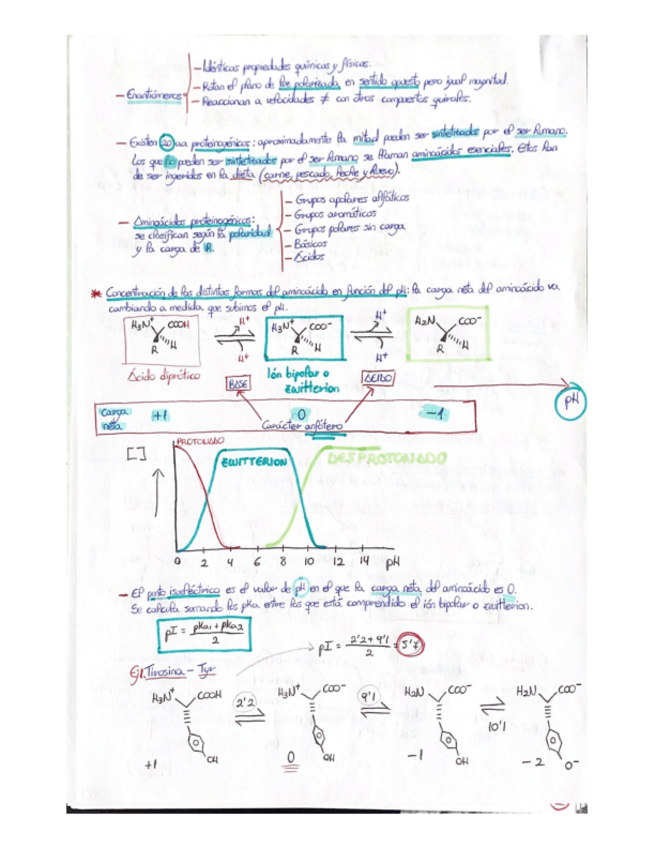 - Idénticas propiedades químicas y físicas.
- Enantiómeros - Rotan el plano de luz polarizada en sentido opuesto pero igual magnitud.
- Reaccionan a velocidades ≠ con otros compuestos quirales.
- Existen 20 aa proteinogénicos: aproximadamente la mitad pueden ser sintetizados por el ser humano.
Los que no pueden ser sintetizados por el ser humano se llaman aminoácidos esenciales. Estos han
de ser ingeridos en la dieta (carne, pescado, leche y huevo).
- Grupos apolares alifáticos
- Aminoácidos proteinogénicos: - Grupos aromáticos
se clasifican según la polaridad - Grupos polares sin carga
y la carga de R. - Básicos
- Ácidos
* Concentración de las distintas formas del aminoácido en función del pH: la carga neta del aminoácido va
cambiando a medida que subimos el pH.
H₃N⁺ COOH H⁺ H₃N⁺ COO⁻ H⁺ H₂N COO⁻
R H H⁺ R H H⁺ R H
Ácido diprótico Ión bipolar o BASE ÁCIDO
zwitterion
pH
Carga neta +1 0 -1
Carácter anfótero
[ ] PROTONADO ZWITTERION DESPROTONADO
0 2 4 6 8 10 12 14 pH
- El punto isoeléctrico es el valor de pH en el que la carga neta del aminoácido es 0.
Se calcula sumando los pka entre los que está comprendido el ión bipolar o zwitterion.
pI = pka₁ + pka₂ / 2
pI = 2'2 + 9'1 / 2 = 5'7
Ej. Tirosina - Tyr
H₃N⁺ COOH 2'2 H₃N⁺ COO⁻ 9'1 H₂N COO⁻ 10'1 H₂N COO⁻
+1 OH 0 OH -1 OH -2 O⁻